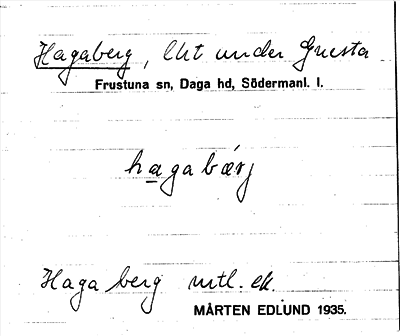 Hagaberg, lht under Gnesta
Frustuna sn, Daga hd, Södermanl. l.
hagabærj
Haga berg mtl. ek.
MÅRTEN EDLUND 1935.